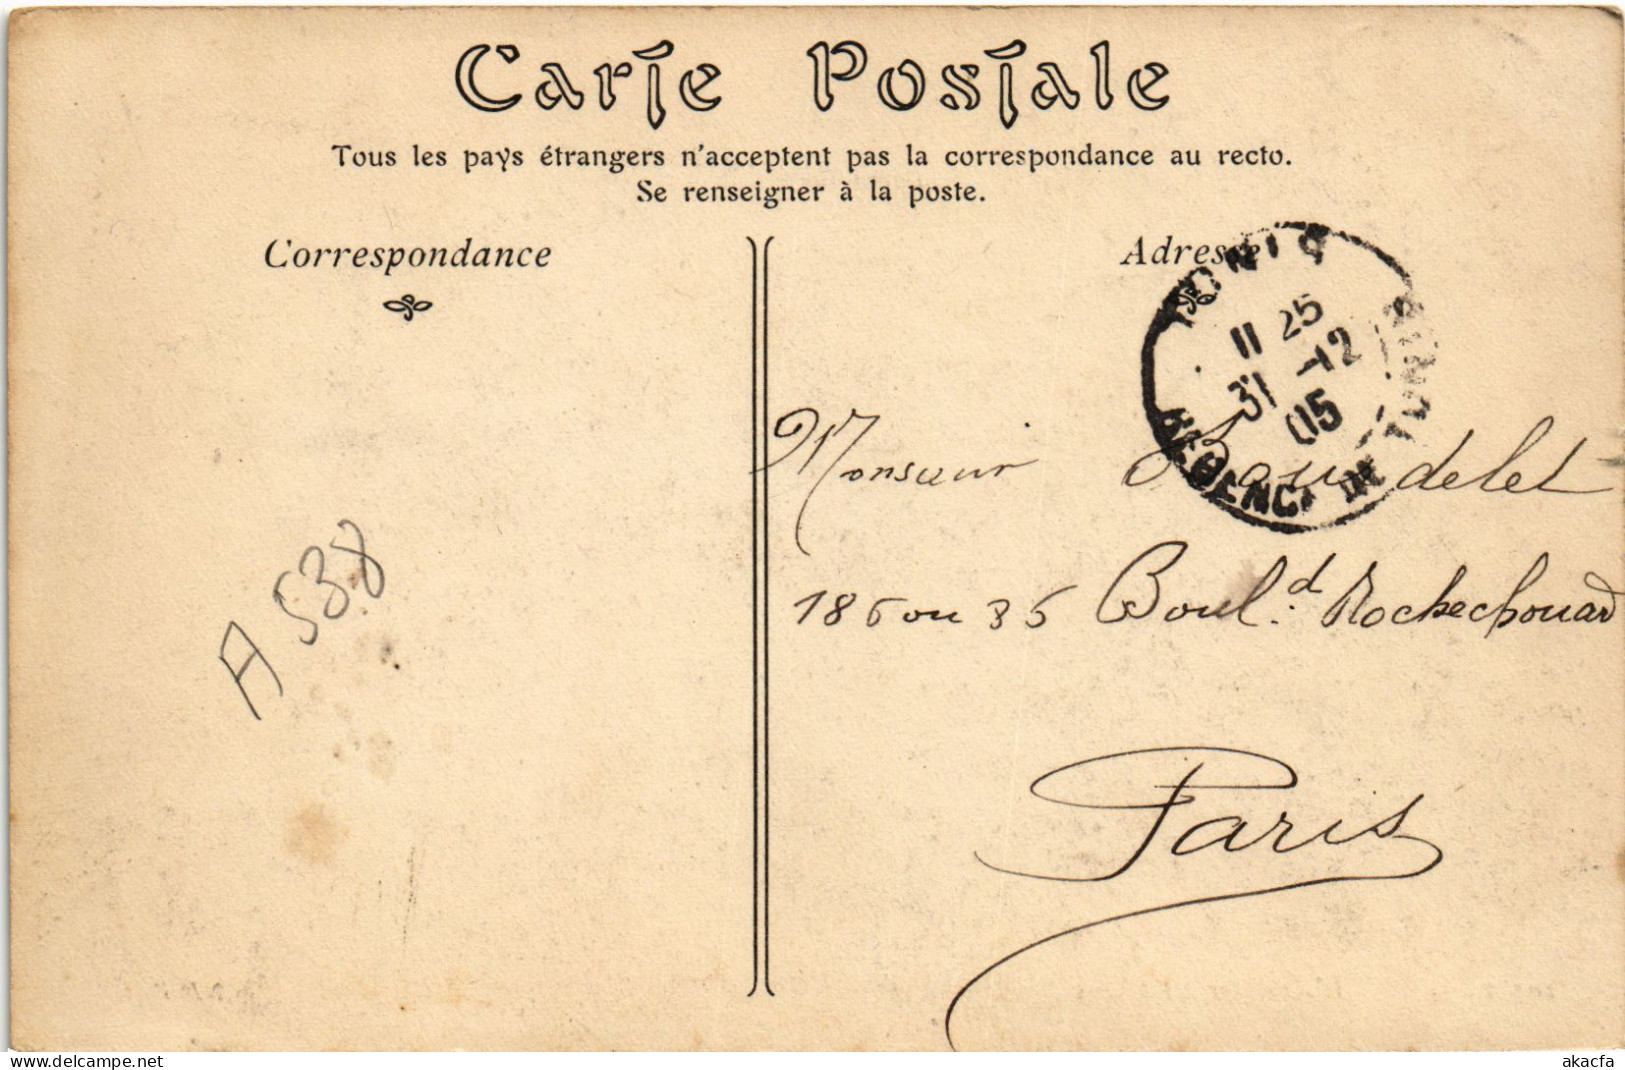 Carte Postale
Tous les pays étrangers n'acceptent pas la correspondance au recto.
Se renseigner à la poste.
Correspondance
Adresse
TUNIS
11 25
31 -12
05
REGENCE DE TUNIS
Monsieur
186 ou 36 Boul.d Rochechouard
Paris
A 538
www.delcampe.net
akacfa